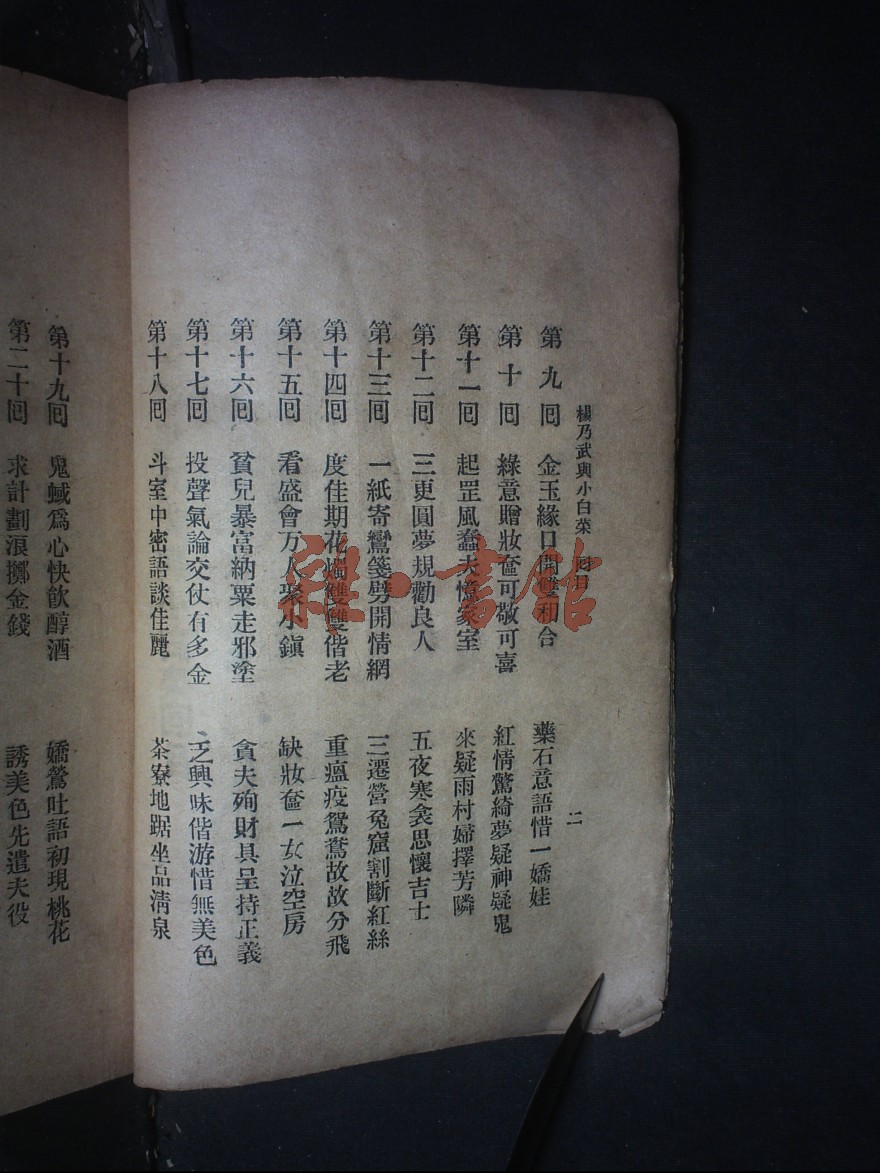 楊乃武與小白菜 回目
二
第九回 金玉緣口開雙和合 藥石意語惜一嬌娃
第十回 綠意贈妝奩可敬可喜 紅情驚綺夢疑神疑鬼
第十一回 起罡風蠢夫憶家室 來疑雨村婦擇芳隣
第十二回 三更圓夢規勸良人 五夜寒衾思懷吉士
第十三回 一紙寄鸞箋劈開情網 三遷營兔窟割斷紅絲
第十四回 度佳期花燭雙雙偕老 重瘟疫鴛鴦故故分飛
第十五回 看盛會万人聚小鎮 缺妝奩一女泣空房
第十六回 貧兒暴富納粟走邪塗 貪夫殉財具呈持正義
第十七回 投聲氣論交仗有多金 乏興味偕游惜無美色
第十八回 斗室中密語談佳麗 茶寮地踞坐品清泉
第十九回 鬼蜮爲心快飲醇酒 嬌鶯吐語初現桃花
第二十回 求計劃浪擲金錢 誘美色先遣夫役
雜·書店